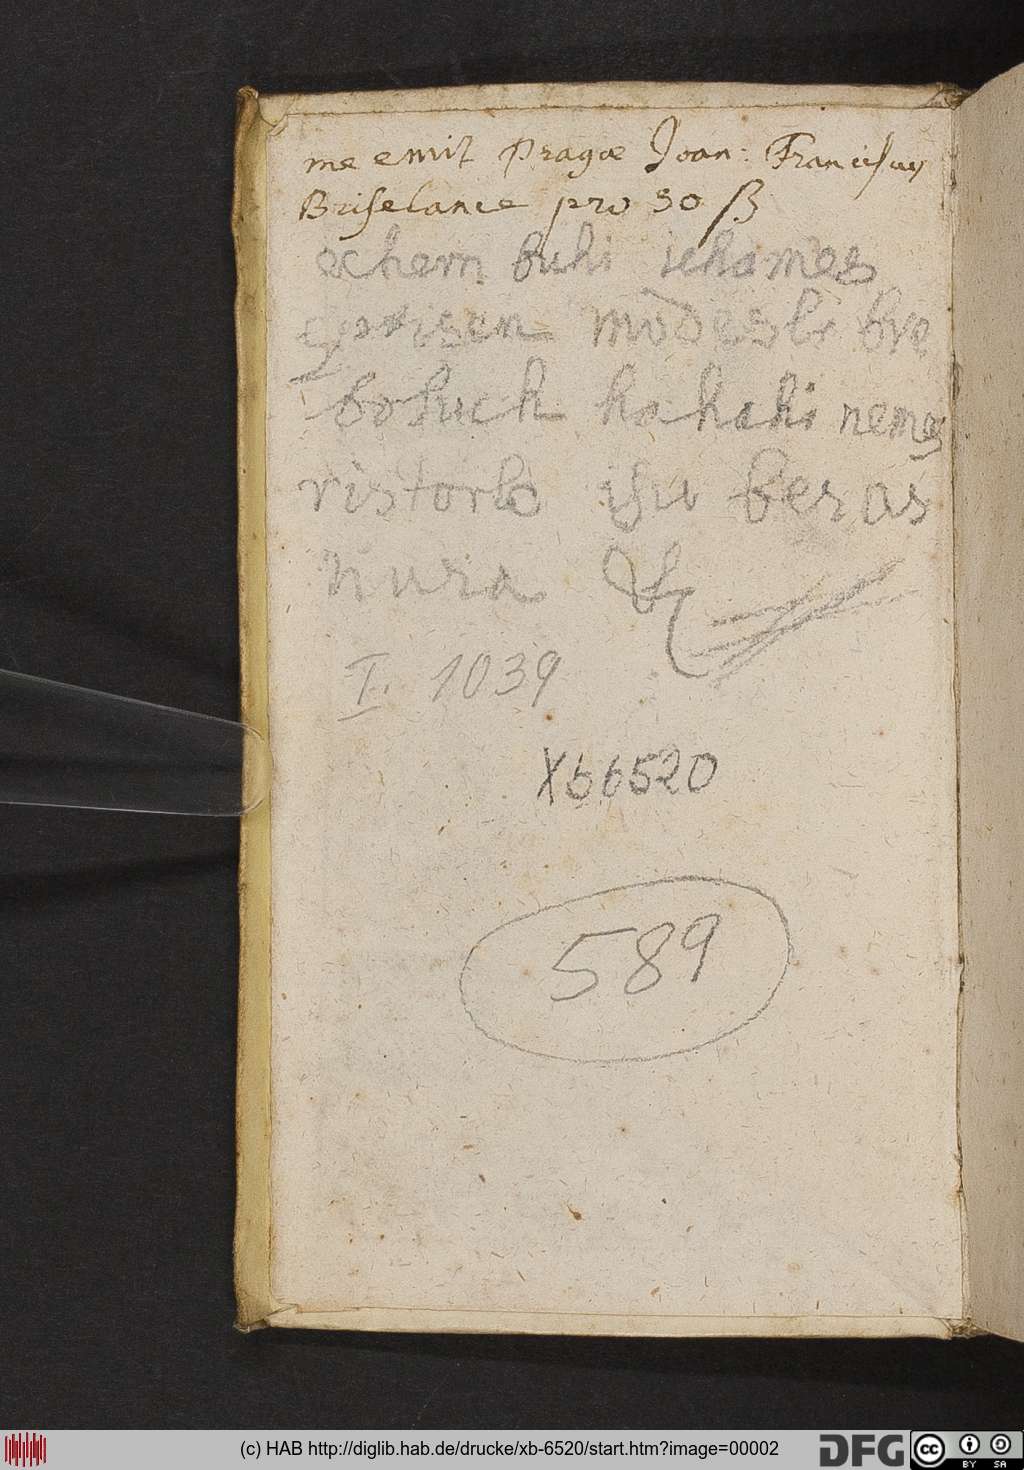 me emit Pragæ Joan: Franciscus
Briselance pro 30 ß
echem buhi ichames
modesli bre
boluch hahahi nemes
ristorlo isiu beras
nura &
I. 1039
Xb 6520
589
(c) HAB http://diglib.hab.de/drucke/xb-6520/start.htm?image=00002
DFG
cc BY SA